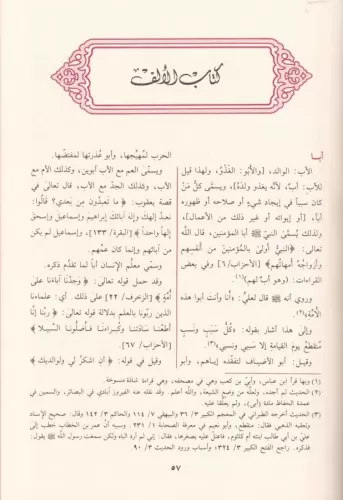 كتاب الألف
أبا
الأب: الوالد، [والأبُو: الغَذْوُ، ولهذا قيل
للأب: أبٌ، لأنّه يغذو ولدَه]، ويسمّى كلُّ مَنْ
كان سبباً في إيجاد شيءٍ أو صلاحه أو ظهوره
أباً، [أو إيوائه أو غير ذلك من الأعمال]،
ولذلك يُسمّى النبيُّ ﷺ أبا المؤمنين، قال الله
تعالى: ﴿النبيُّ أولىٰ بالمؤمنين من أنفسِهم
وأزواجُهُ أمهاتُهم﴾ [الأحزاب/٦] وفي بعض
القراءات: (وهو أبٌ لهم)(١).
وروي أنّه ﷺ قال لعليّ: «أنا وأنتَ أبوا هذه
الأمّة»(٢).
وإلى هذا أشار بقوله: «كُلُّ سَبَبٍ ونَسَبٍ
منقطعٌ يومَ القيامة إلا سببي ونسبي»(٣).
وقيل: أبو الأضياف لتفقّده إياهم، وأبو
الحرب لمُهيِّجها، وأبو عُذرتها لمفتضّها.
ويسمّى العم مع الأب أبوين، وكذلك الأم مع
الأب، وكذلك الجدّ مع الأب، قال تعالى في
قصة يعقوب: ﴿ما تعبدُون مِن بعدي؟ قالوا:
نعبدُ إلهك وإله آبائك إبراهيم وإسماعيل وإسحق
إلهاً واحداً﴾ [البقرة/١٣٣]، وإسماعيل لم يكن
من آبائهم وإنما كان عمَّهم.
وسمّي معلّم الإنسان أباً لما تقدّم ذكره.
وقد حمل قوله تعالى: ﴿وَجَدْنا آباءَنا علىٰ
أُمَّةٍ﴾ [الزخرف/٢٢] على ذلك. أي: علماءَنا
الذين ربّونا بالعلم بدلالة قوله تعالى: ﴿ربّنا إنّا
أطَعْنا سادَتَنا وكُبراءَنا فأضلُّونا السَّبيلا﴾
[الأحزاب/ ٦٧].
وقيل في قوله: ﴿أنِ اشكُرْ لي ولوالديك﴾
(١) وبها قرأ ابن عباس، وأبيّ بن كعب وهي في مصحفه، وهي قراءة شاذة منسوخة.
(٢) الحديث لم أجده، ولعلّه من وضع الشيعة، والله أعلم. وقد نقله عنه الفيروز آبادي في البصائر، والسمين في
عمدة الحفاظ مادة (أبى)، ولم يعلّقا عليه.
(٣) الحديث أخرجه الطبراني في المعجم الكبير ٣/ ٣٦ والبيهقي ٧/ ١١٤ والحاكم ٣/ ١٤٢ وقال: صحيح الإسناد
وتعقبه الذهبي فقال: منقطع، وأبو نعيم في معرفة الصحابة ١/ ٢٣١. وسببه أنّ عمر بن الخطاب خطب إلى
علي بن أبي طالب ابنته أم كلثوم، فاعتلّ عليه بصغرها، فقال: إني لم أرد الباه ولكن سمعت رسول الله ﷺ يقول:
فذكره. راجع الفتح الكبير ٣/ ٣٢٤؛ وأسباب ورود الحديث ٣/ ٩٠.
٥٧